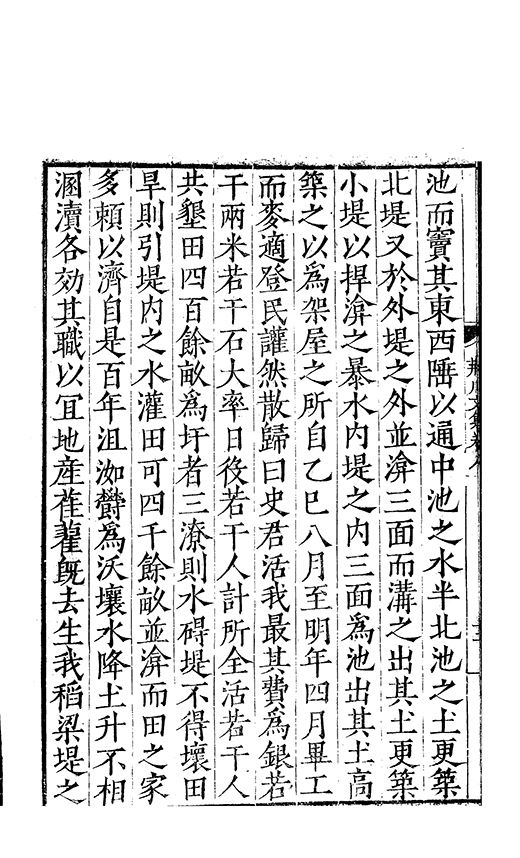 池而竇其東西陲以通中池之水半北池之土更築
北堤又於外堤之外並渰三面而溝之出其土更築
小堤以捍渰之暴水内堤之内三面爲池出其土高
築之以爲架屋之所自乙巳八月至明年四月畢工
而麥適登民讙然散歸曰史君活我最其費爲銀若
干兩米若干石大率日役若干人計所全活若干人
共墾田四百餘畝爲圩者三潦則水碍堤不得壞田
旱則引堤内之水灌田可四千餘畝並渰而田之家
多頼以濟自是百年沮洳欝爲沃壤水降土升不相
溷瀆各効其職以宜地産萑雚既去生我稻梁堤之